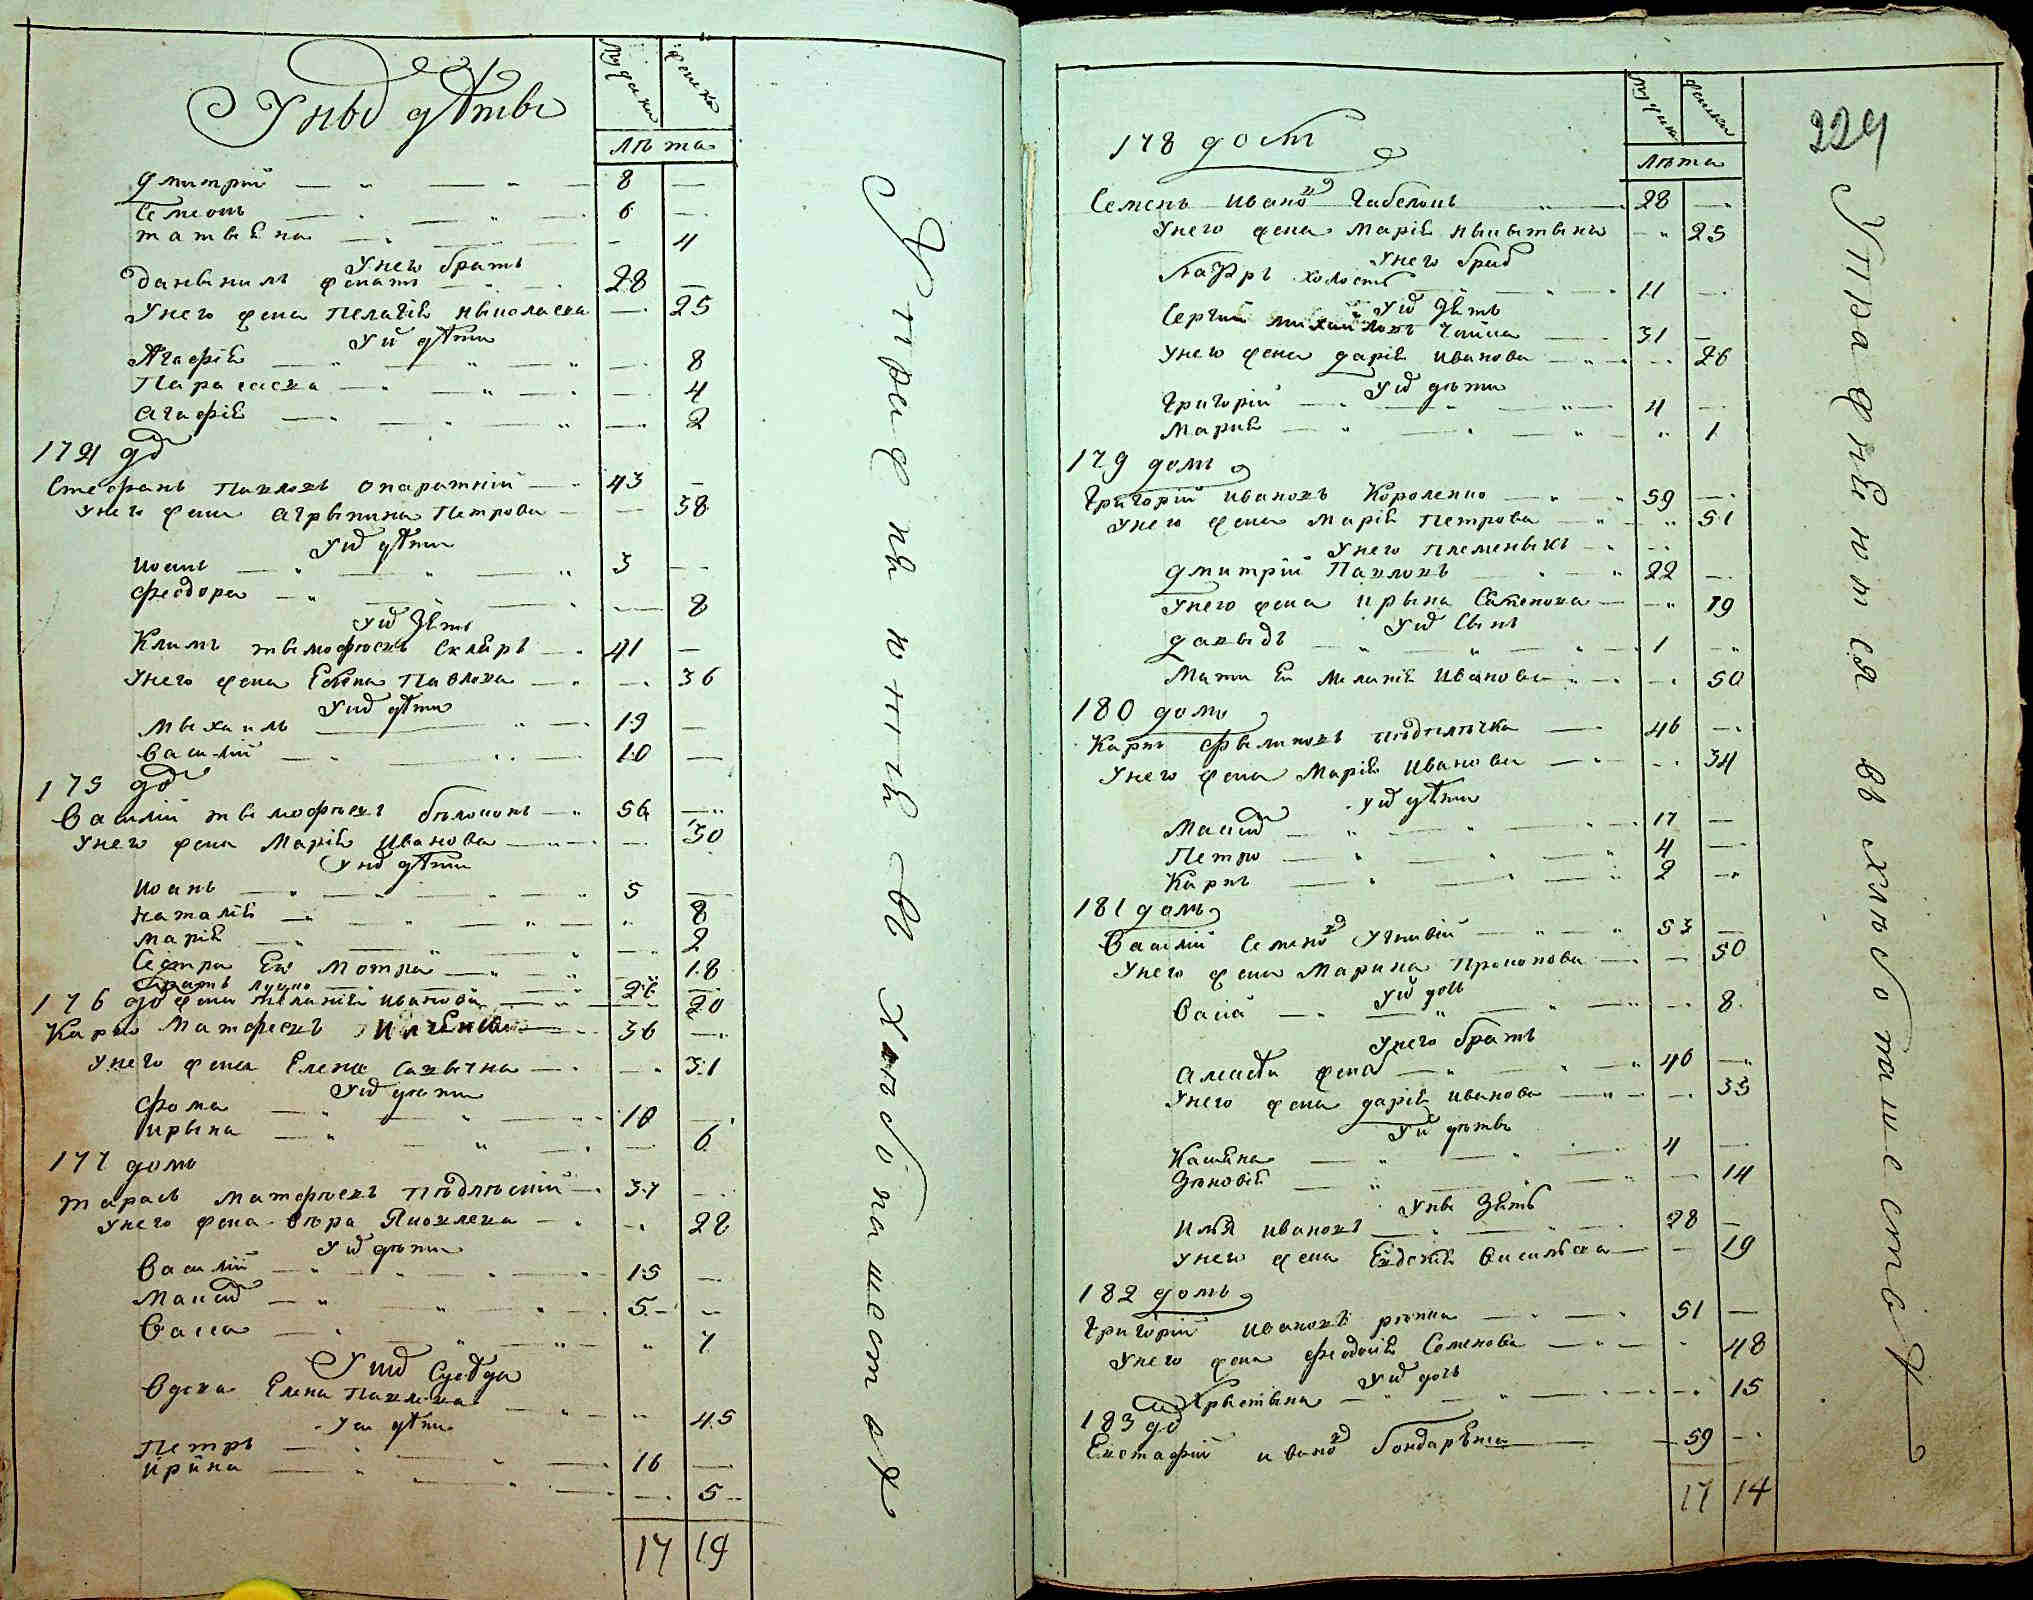 У ныхъ дѣты
мужеска
женска
лѣта
Дмитрій 8
Семеонъ 6
татьяна 4
Унего братъ
Даныилъ женатъ 28
Унего жена Пелагія Ныколаева 25
У ихъ дѣти
Агафія 8
Параскева 4
Агафія 2
174 до
Стефанъ Павловъ 43
Унего жена Агрыпина Петрова 38
У ихъ дѣти
Иоанъ 3
Феодора 8
У ихъ зять
Климъ тымофѣевъ Скляръ 41
Унего жена Елена Павлова 36
У ихъ дѣти
Мыхаилъ 19
Василій 10
175 до
Василій тымофѣевъ 56
Унего жена Марія Иванова 30
У ихъ дѣти
Иоанъ 5
Наталія 8
Марія 2
Сестра Ея Мотря 18
братъ 26
жена Меланія Иванова 20
176 до
Карпъ Матфеевъ 36
Унего жена Елена Савычна 31
У ихъ дѣти
Фома 10
Ирына 6
177 домъ
Тарасъ Матфѣевъ 37
Унего жена Вѣра Яковлева 28
У ихъ дѣти
Василій 15
Маѯимъ 5
Васса 7
У ихъ Сусѣда
Вдова Елена Павлова 45
У ея дѣти
Петръ 16
Ирина 5
17 19
Упражняются въ хлѣбопашествѣ
224
мужеска
женска
лѣта
178 домъ
Семенъ Ивановъ 28
Унего жена Марія Ныкытына 25
Унего братъ
Лавръ холостъ 11
У ихъ зять
Сергій михайловъ Чайка 31
Унего жена Дарія Иванова 26
У ихъ дѣти
Григорій 4
Марія 1
179 домъ
Григорій Ивановъ Короленко 59
Унего жена Марія Петрова 51
Унего племеныкъ
Дмитрій Павловъ 22
Унего жена Ирына Семенова 19
У ихъ сынъ
Давыдъ 1
Мати Ея Меланія Иванова 50
180 домъ
Карпъ Фылиповъ 46
Унего жена Марія Иванова 34
У ихъ дѣти
Маѯимъ 17
Петро 4
Карпъ 2
181 домъ
Василій Семеновъ 53
Унего жена Марина Прокопова 50
У ихъ дочь
Васса 8
Унего братъ
Алексѣй женатъ 40
Унего жена Дарія Иванова 33
У ихъ дѣты
4
Зѣновія 14
У ныхъ зять
Илья Ивановъ 28
Унего жена Евдокія Василева 19
182 домъ
Григорій Ивановъ 51
Унего жена Феодосія Семенова 48
У ихъ дочь
Хрыстына 15
183 до
Евстафій Ивановъ Бондаренко 59
17 14
Упражняются въ хлѣбопашествѣ